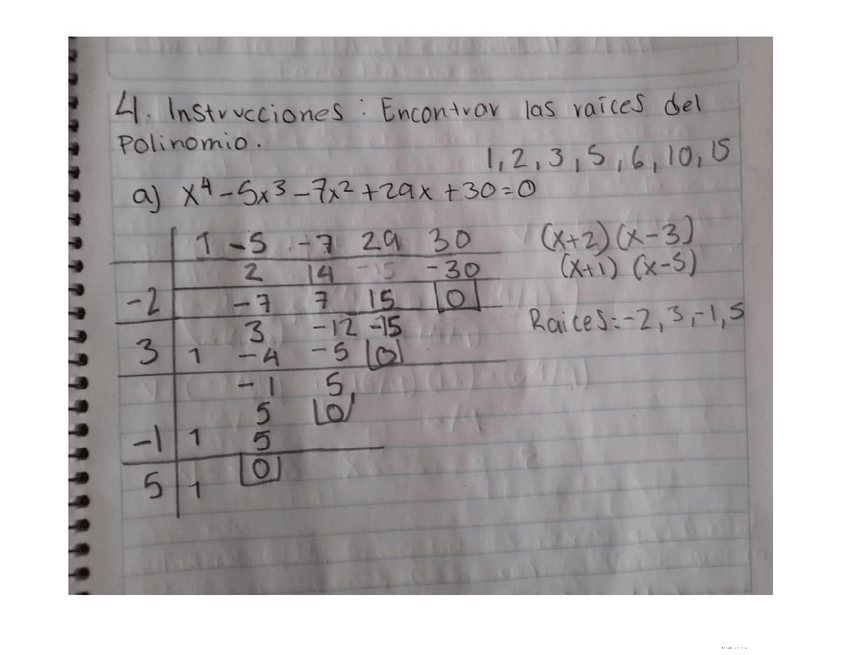 4. Instrucciones: Encontrar las raices del
Polinomio.
1, 2, 3, 5, 6, 10, 15
a) x⁴-5x³-7x²+29x+30=0
1 -5 -7 29 30
2 14 -15 -30
-2 -7 7 15 0
3 -12 -15
3 1 -4 -5 0
-1 5
5 0
-1 1 5
5 1 0
(x+2)(x-3)
(x+1) (x-5)
Raices:-2, 3, -1, 5